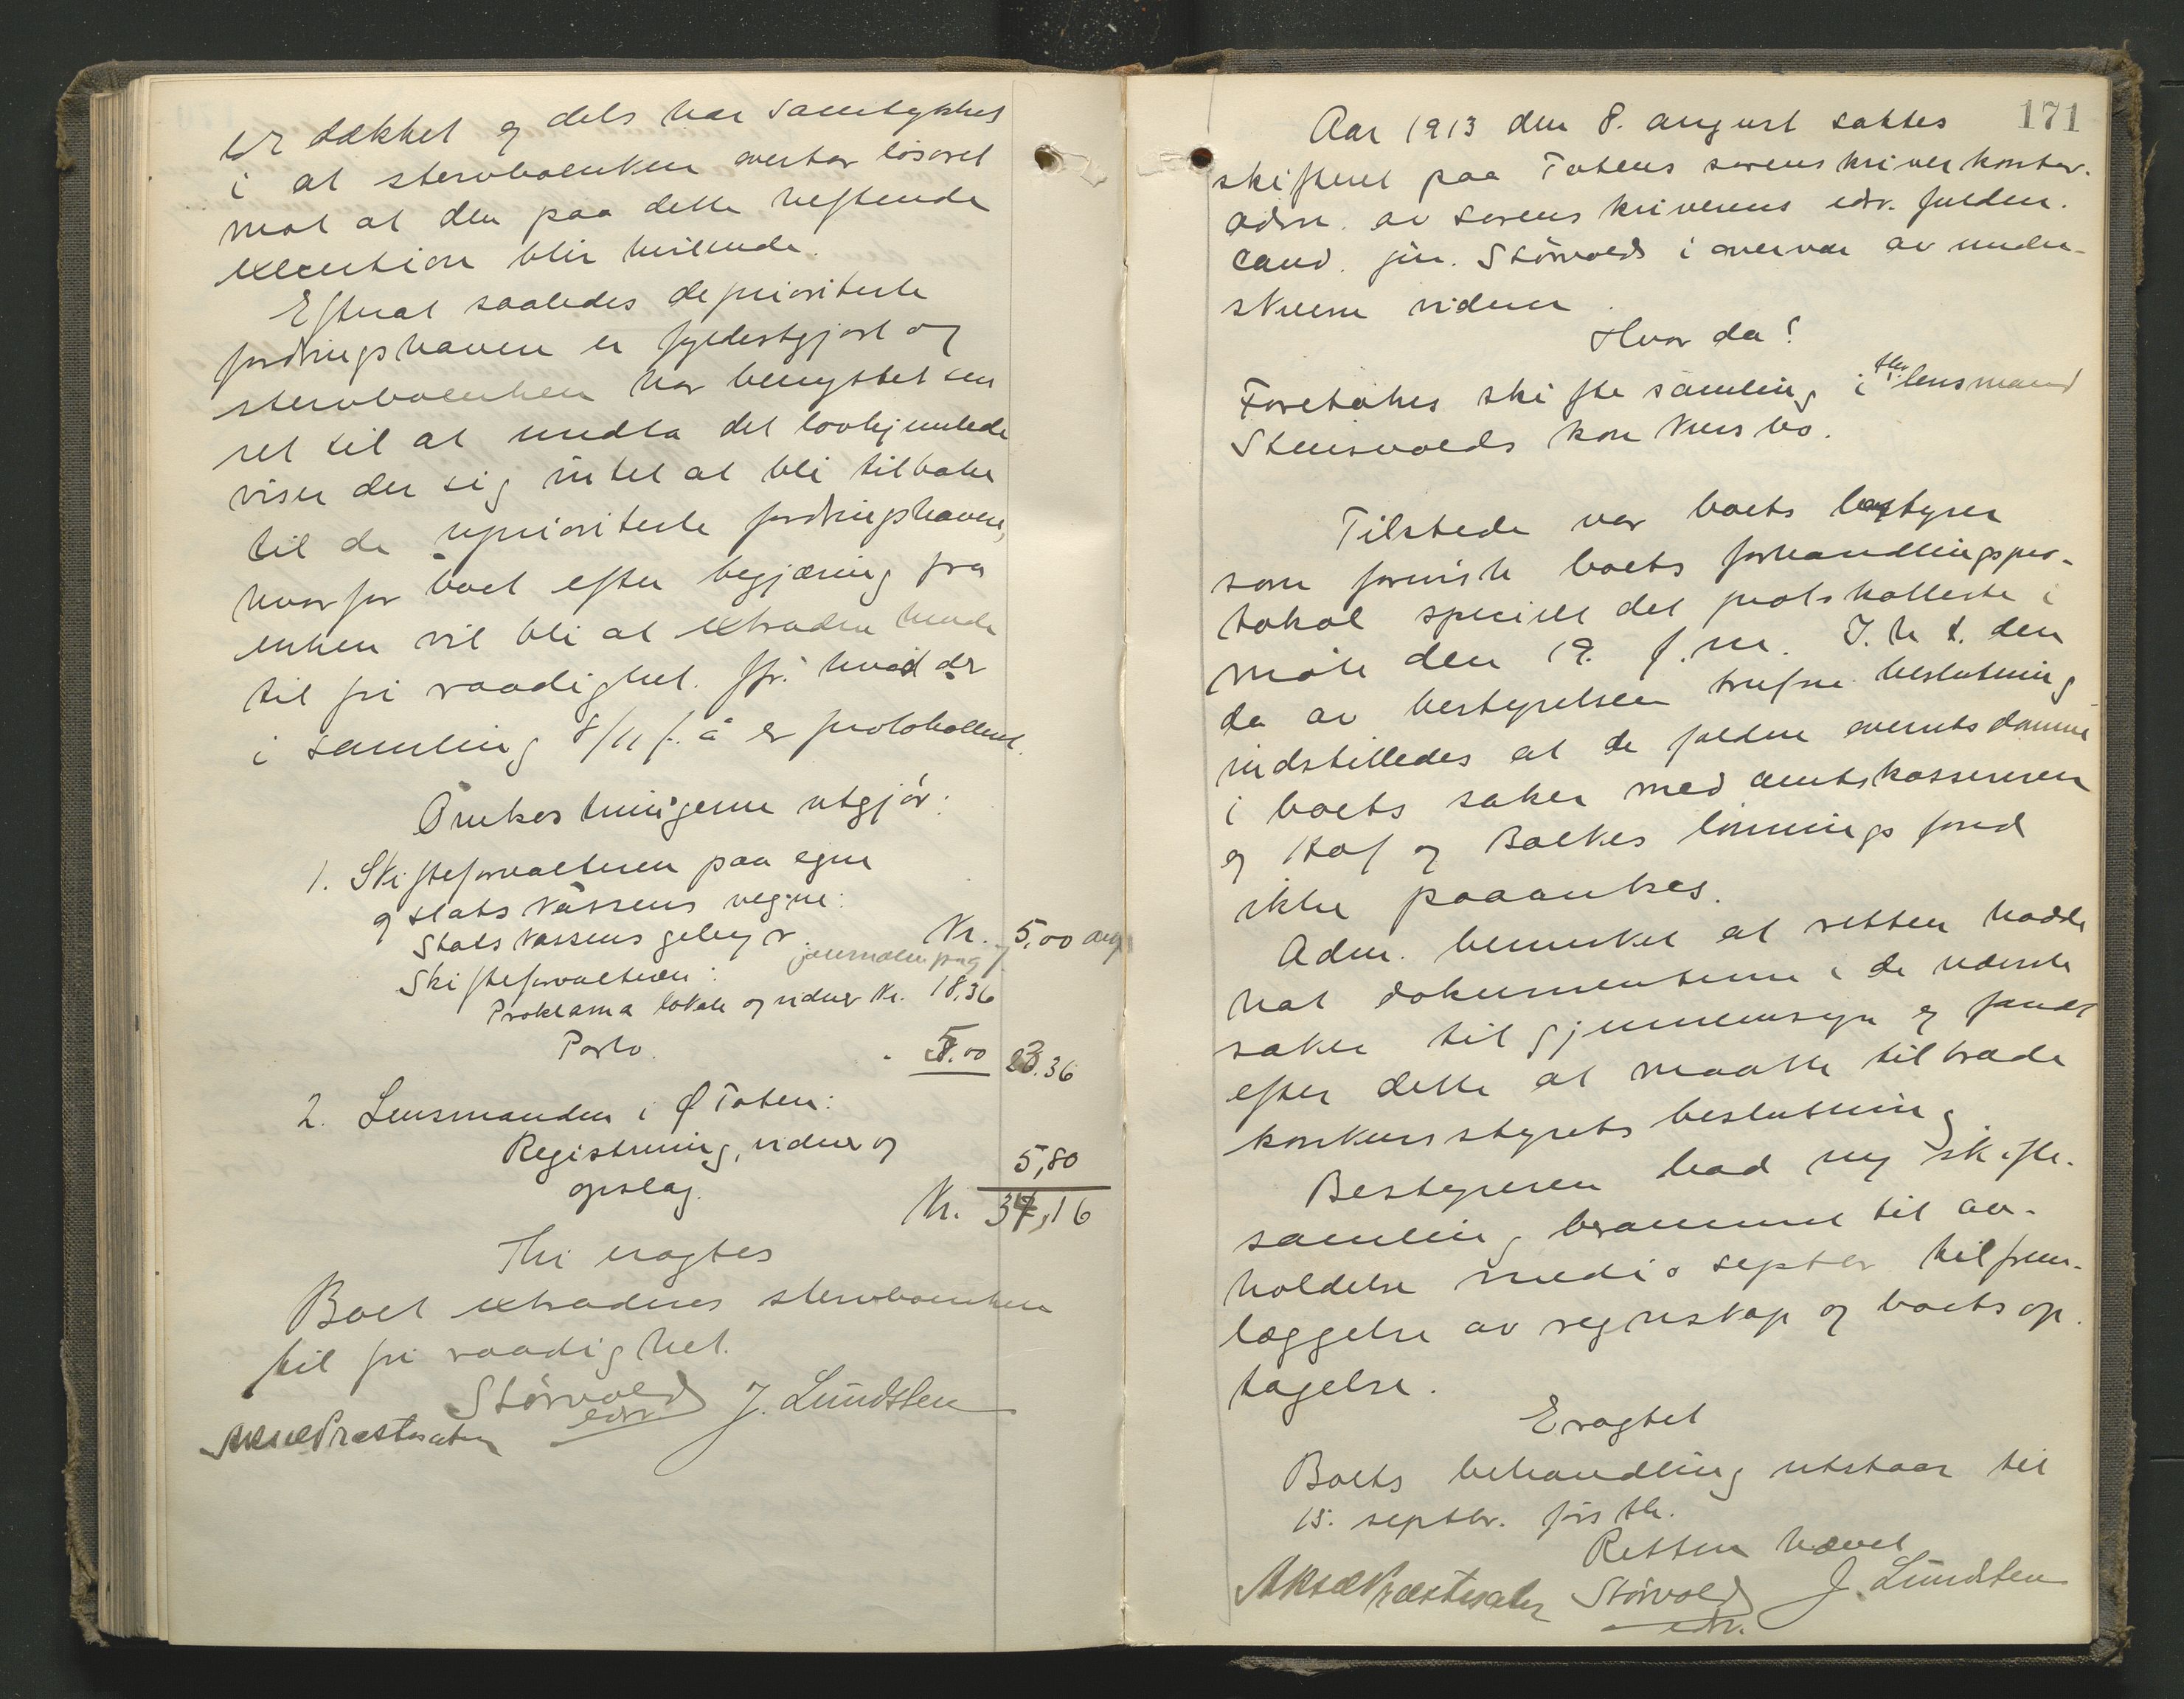 er dækket og dels har samtykket
i at stervboenken overtar løsøret
mot at den paa dette heftende
execution blir hvilende.
Efterat saaledes de prioriterte
fordringshavere er fyldestgjort og
stervboenken har benyttet sin
ret til at undta det lovhjemlede
viser der sig intet at bli tilbake
til de uprioriterte fordringshavere,
hvorfor boet efter begjæring fra
enken vil bli at extradere hende
til fri raadighet. Jfr. hvad der
i samling 8/11 f. å er protokolleret.
Omkostningerne utgjør:
1. Skifteforvalteren paa egne
og statskassens vegne:
Statskassens gebyr Kr. 5,00
Skifteforvalteren: journalen pag
Proklama lokale og vidner Kr. 18,36
Porto. - 5.00 23.36
2. Lensmanden i Ø Toten:
Registrering, vidner og
opslag. 5,80
Kr. 34,16
Thi eragtes
Boet extraderes stervboenken
til fri raadighet.
Störvold J. Lundsten
edsv.
Aksel Præstesæter
171
Aar 1913 den 8. august sattes
skifteret paa Totens sorenskriverkontor.
adm. av sorenskriverens edv. fuldm.
cand. jur. Störvold i overvær av under-
skrevne vidner.
Hvor da!
Foretokes skiftesamling i fhv. lensmand
Stensvolds konkursbo.
Tilstede var boets bestyrer
som foreviste boets forhandlingspro-
tokol specielt det protokollerte i
møte den 19. f.m. I. h t. den
da av bestyrelsen trufne beslutning
indstilledes at de faldne overretsdomme
i boets saker med amtskassereren
og Hof og Balkes lønningsfond
ikke paaankes.
Adm. bemerket at retten hadde
hat dokumenterne i de nævnte
saker til gjennemsyn og fandt
efter dette at maatte tiltræde
konkursstyrets beslutning
Bestyreren bad ny skifte-
samling berammet til av-
holdelse medio septbr til frem-
læggelse av regnskap og boets op-
tagelse.
Eragtet
Boets behandling utstaar til
15. septbr. førstk.
Retten hævet
Aksel Præstesæter Störvold J. Lundsten
edsv.